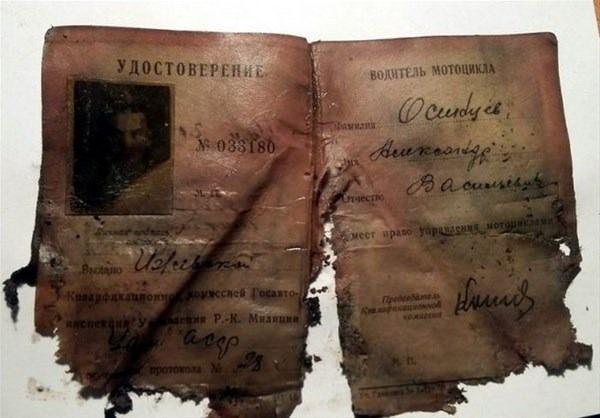 УДОСТОВЕРЕНИЕ
№ 033180
М. П.
Личная подпись
Выдано Ижевской
Квалификационной комиссией Госавто-
инспекции Управления Р.-К. Милиции
Удм АССР
протокола № 28
ВОДИТЕЛЬ МОТОЦИКЛА
Фамилия
Имя Александр
Отчество Васильевич
меет право управления мотоциклами
Председатель
Квалификационной
комиссии
М. П.